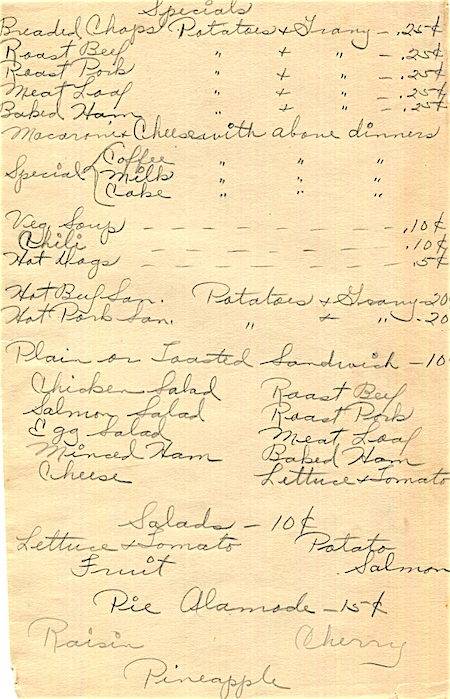 Specials
Breaded Chops Potatoes + Gravy - .25¢
Roast Beef " + " - .25¢
Roast Pork " + " - .25¢
Meat Loaf " + " - .25¢
Baked Ham " + " - .25¢
Macaroni + Cheese with above dinners
Special { Coffee " " "
Milk " " "
Cake " " "
Veg. Soup - - - - - - .10¢
Chili - - - - - - .10¢
Hot Dogs - - - - - - .5¢
Hot Beef San. Potatoes + Gravy - 20
Hot Pork San. " + " . 20
Plain or Toasted Sandwich - 10
Chicken Salad Roast Beef
Salmon Salad Roast Pork
Egg Salad Meat Loaf
Minced Ham Baked Ham
Cheese Lettuce + Tomato
Salads - 10¢
Lettuce + Tomato Potato
Fruit Salmon
Pie Alamode - 15¢
Raisin Cherry
Pineapple